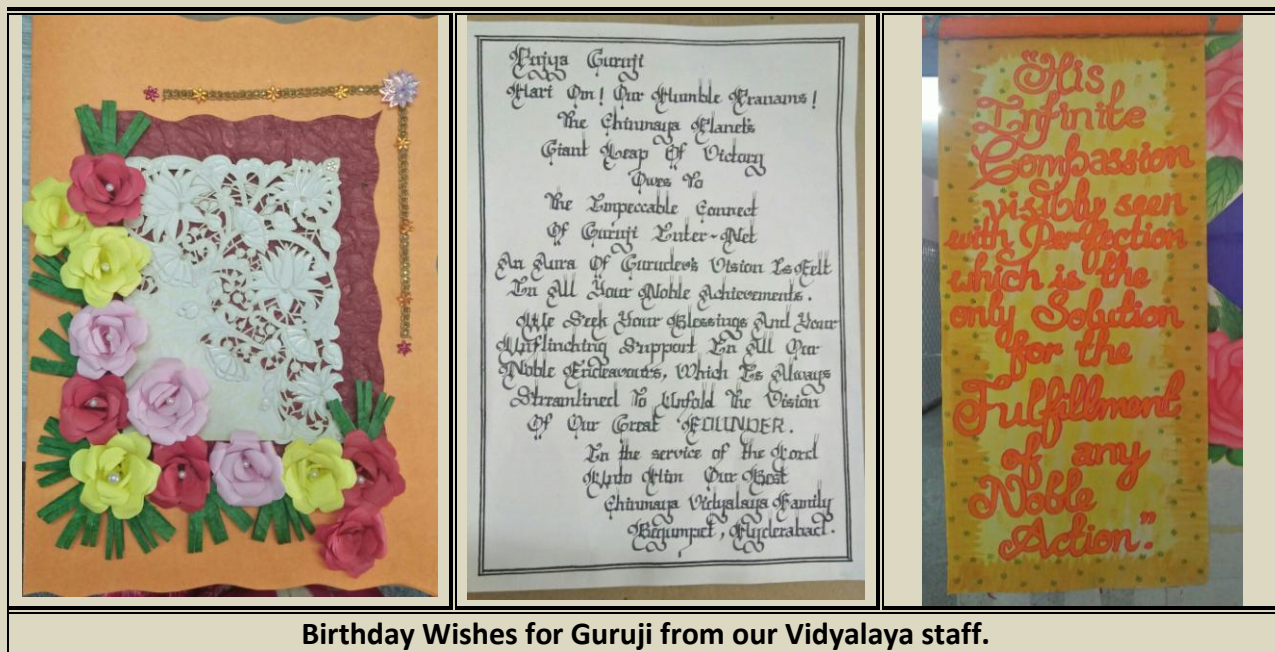 Pujya Guruji
Hari Om! Our Humble Pranams!
The Chinmaya Planet's
Giant Leap Of Victory
Owes To
The Impeccable Connect
Of Guruji Enter-Net
An Aura Of Gurudev's Vision Is Felt
In All Your Noble Achievements.
We Seek Your Blessings And Your
Unflinching Support In All Our
Noble Endeavours, Which Is Always
Streamlined To Unfold The Vision
Of Our Great FOUNDER.
In the service of the Lord
Unto Him Our Best
Chinmaya Vidyalaya Family
Begumpet, Hyderabad.
"His
Infinite
Compassion
visibly seen
with Perfection
which is the
only Solution
for the
Fulfillment
of any
Noble
Action".
Birthday Wishes for Guruji from our Vidyalaya staff.